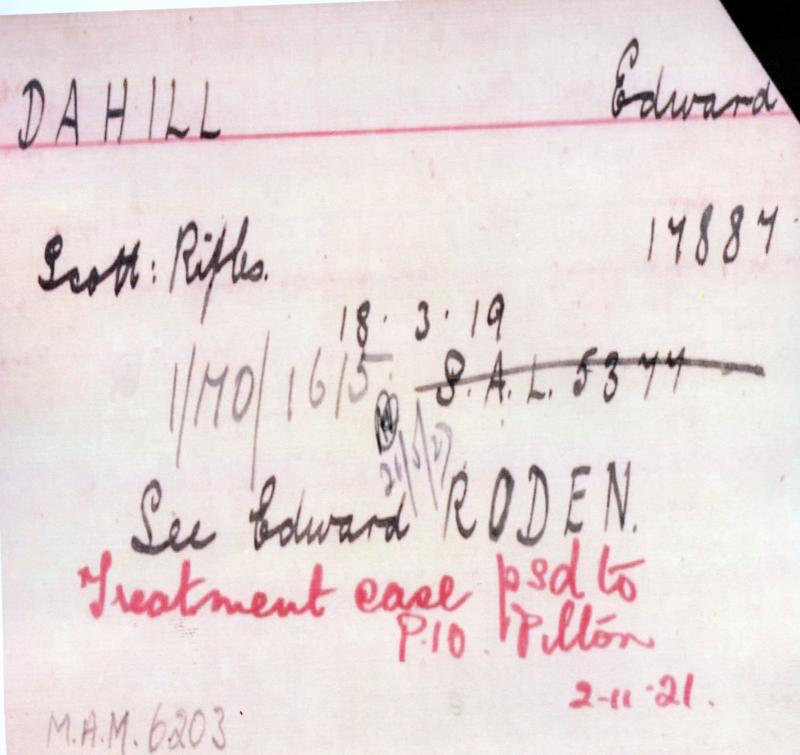 DAHILL Edward
Scott: Rifles. 17887
18. 3. 19
1/MO/1615 S.A.L. 5377
See Edward RODEN.
Treatment case psd to
P.10. Pilton
2-11-21.
M.A.M. 6203